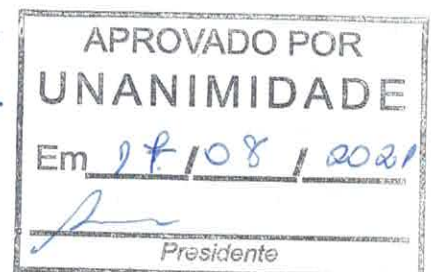 APROVADO POR
UNANIMIDADE
Em 17/08/2021
Presidente